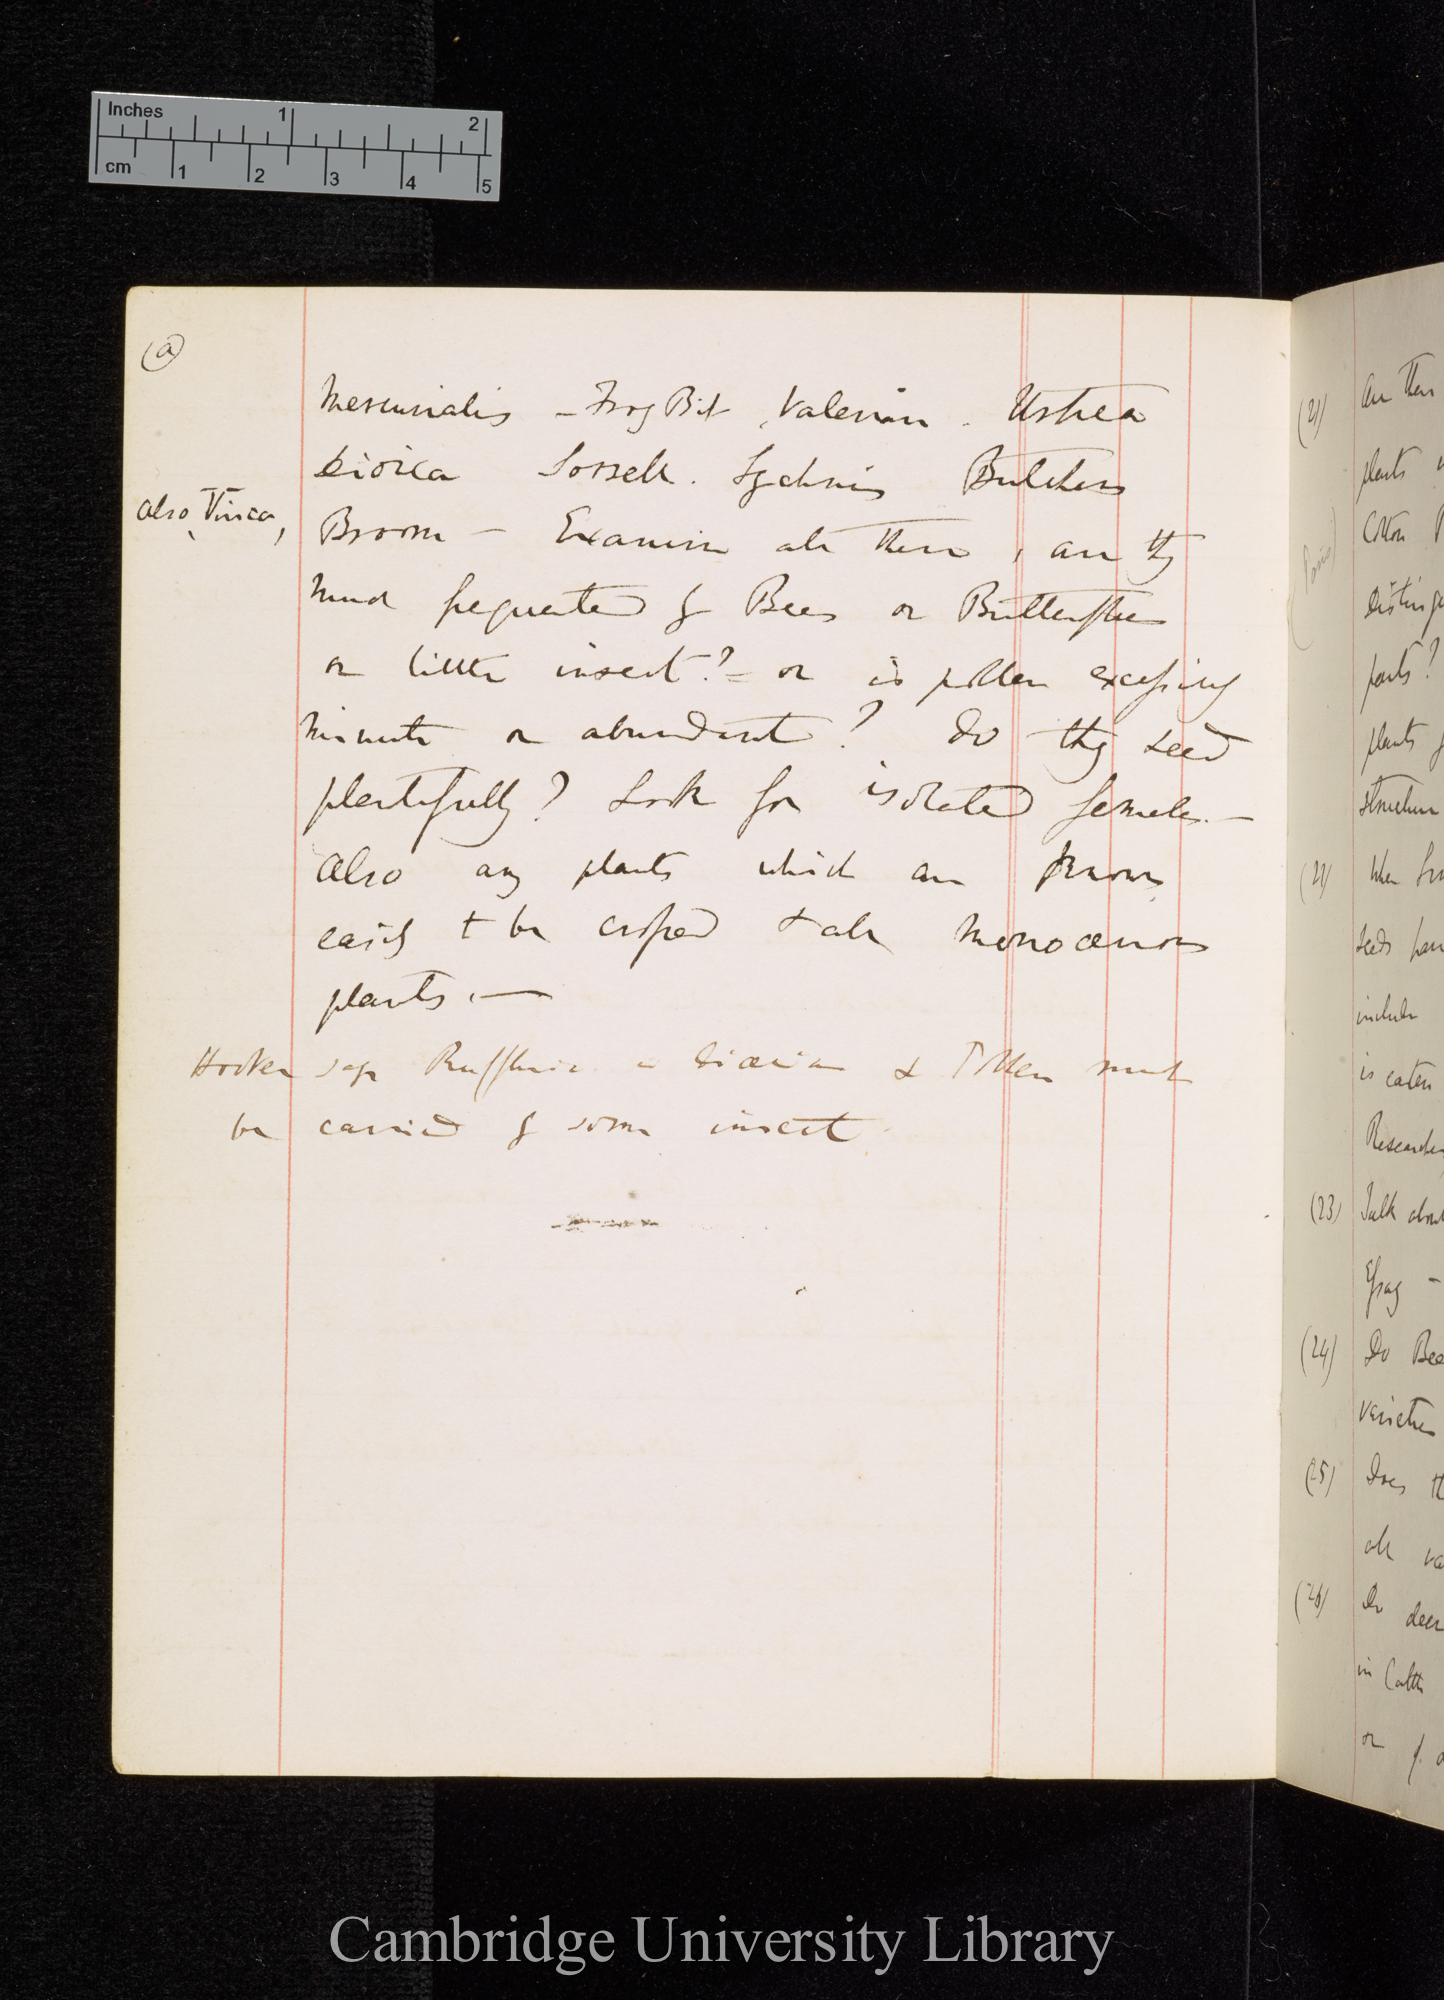 Inches 1 2
cm 1 2 3 4 5
(a)
Mercurialis – Frog Bit, Valerian. Urtica
dioica Sorrell. Lychnis Butchers
also, Vinca,
Broom – Examine all these, are they
much frequented by Bees or Butterflies
or little insect? – or is pollen excessively
minute or abundant? Do they seed
plentifully? Look for isolated females. —
Also any plants which are known
easily to be crossed & all monoecious
plants. —
Hooker says Rafflesia is dioecious & Pollen must
be carried by some insect
(21) Are there
plants
Cotton
(Pans)
disting
parts?
plants
structure
(22) When
seeds
include
is eaten
Researches
(23) Talk about
(24) Do Bee
varieties
(25) Does th
all va
(26) Do deer
in Cattle
or
Cambridge University Library